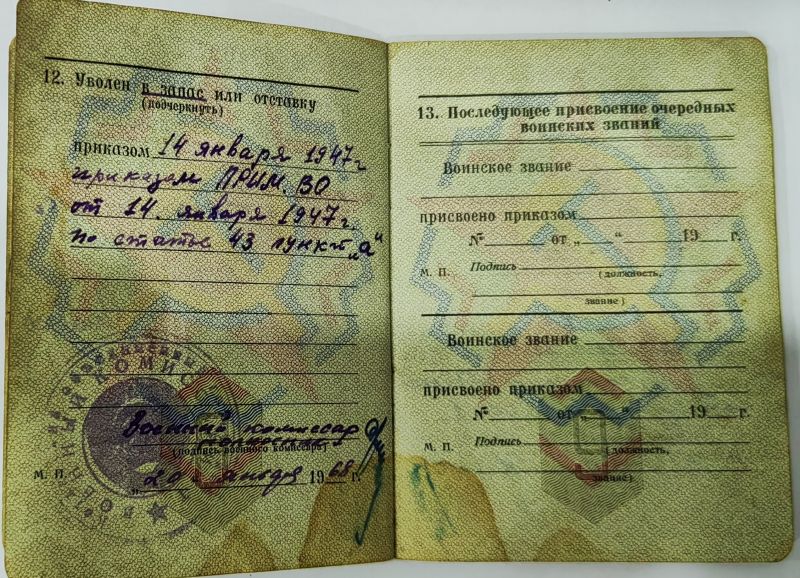 12. Уволен в запас или отставку
(подчеркнуть)
приказом 14 января 1947 г
приказом ПРИМ. ВО
от 14. января 1947 г.
по статье 43 пункт „а“
Военный комиссар
(подпись военного комиссара)
М. П.
„20 января 1968 г.
13. Последующее присвоение очередных
воинских званий
Воинское звание
присвоено приказом
№ от „ “ 19 г.
М. П. Подпись
(должность,
звание)
Воинское звание
присвоено приказом
№ от „ “ 19 г.
М. П. Подпись
(должность,
звание)